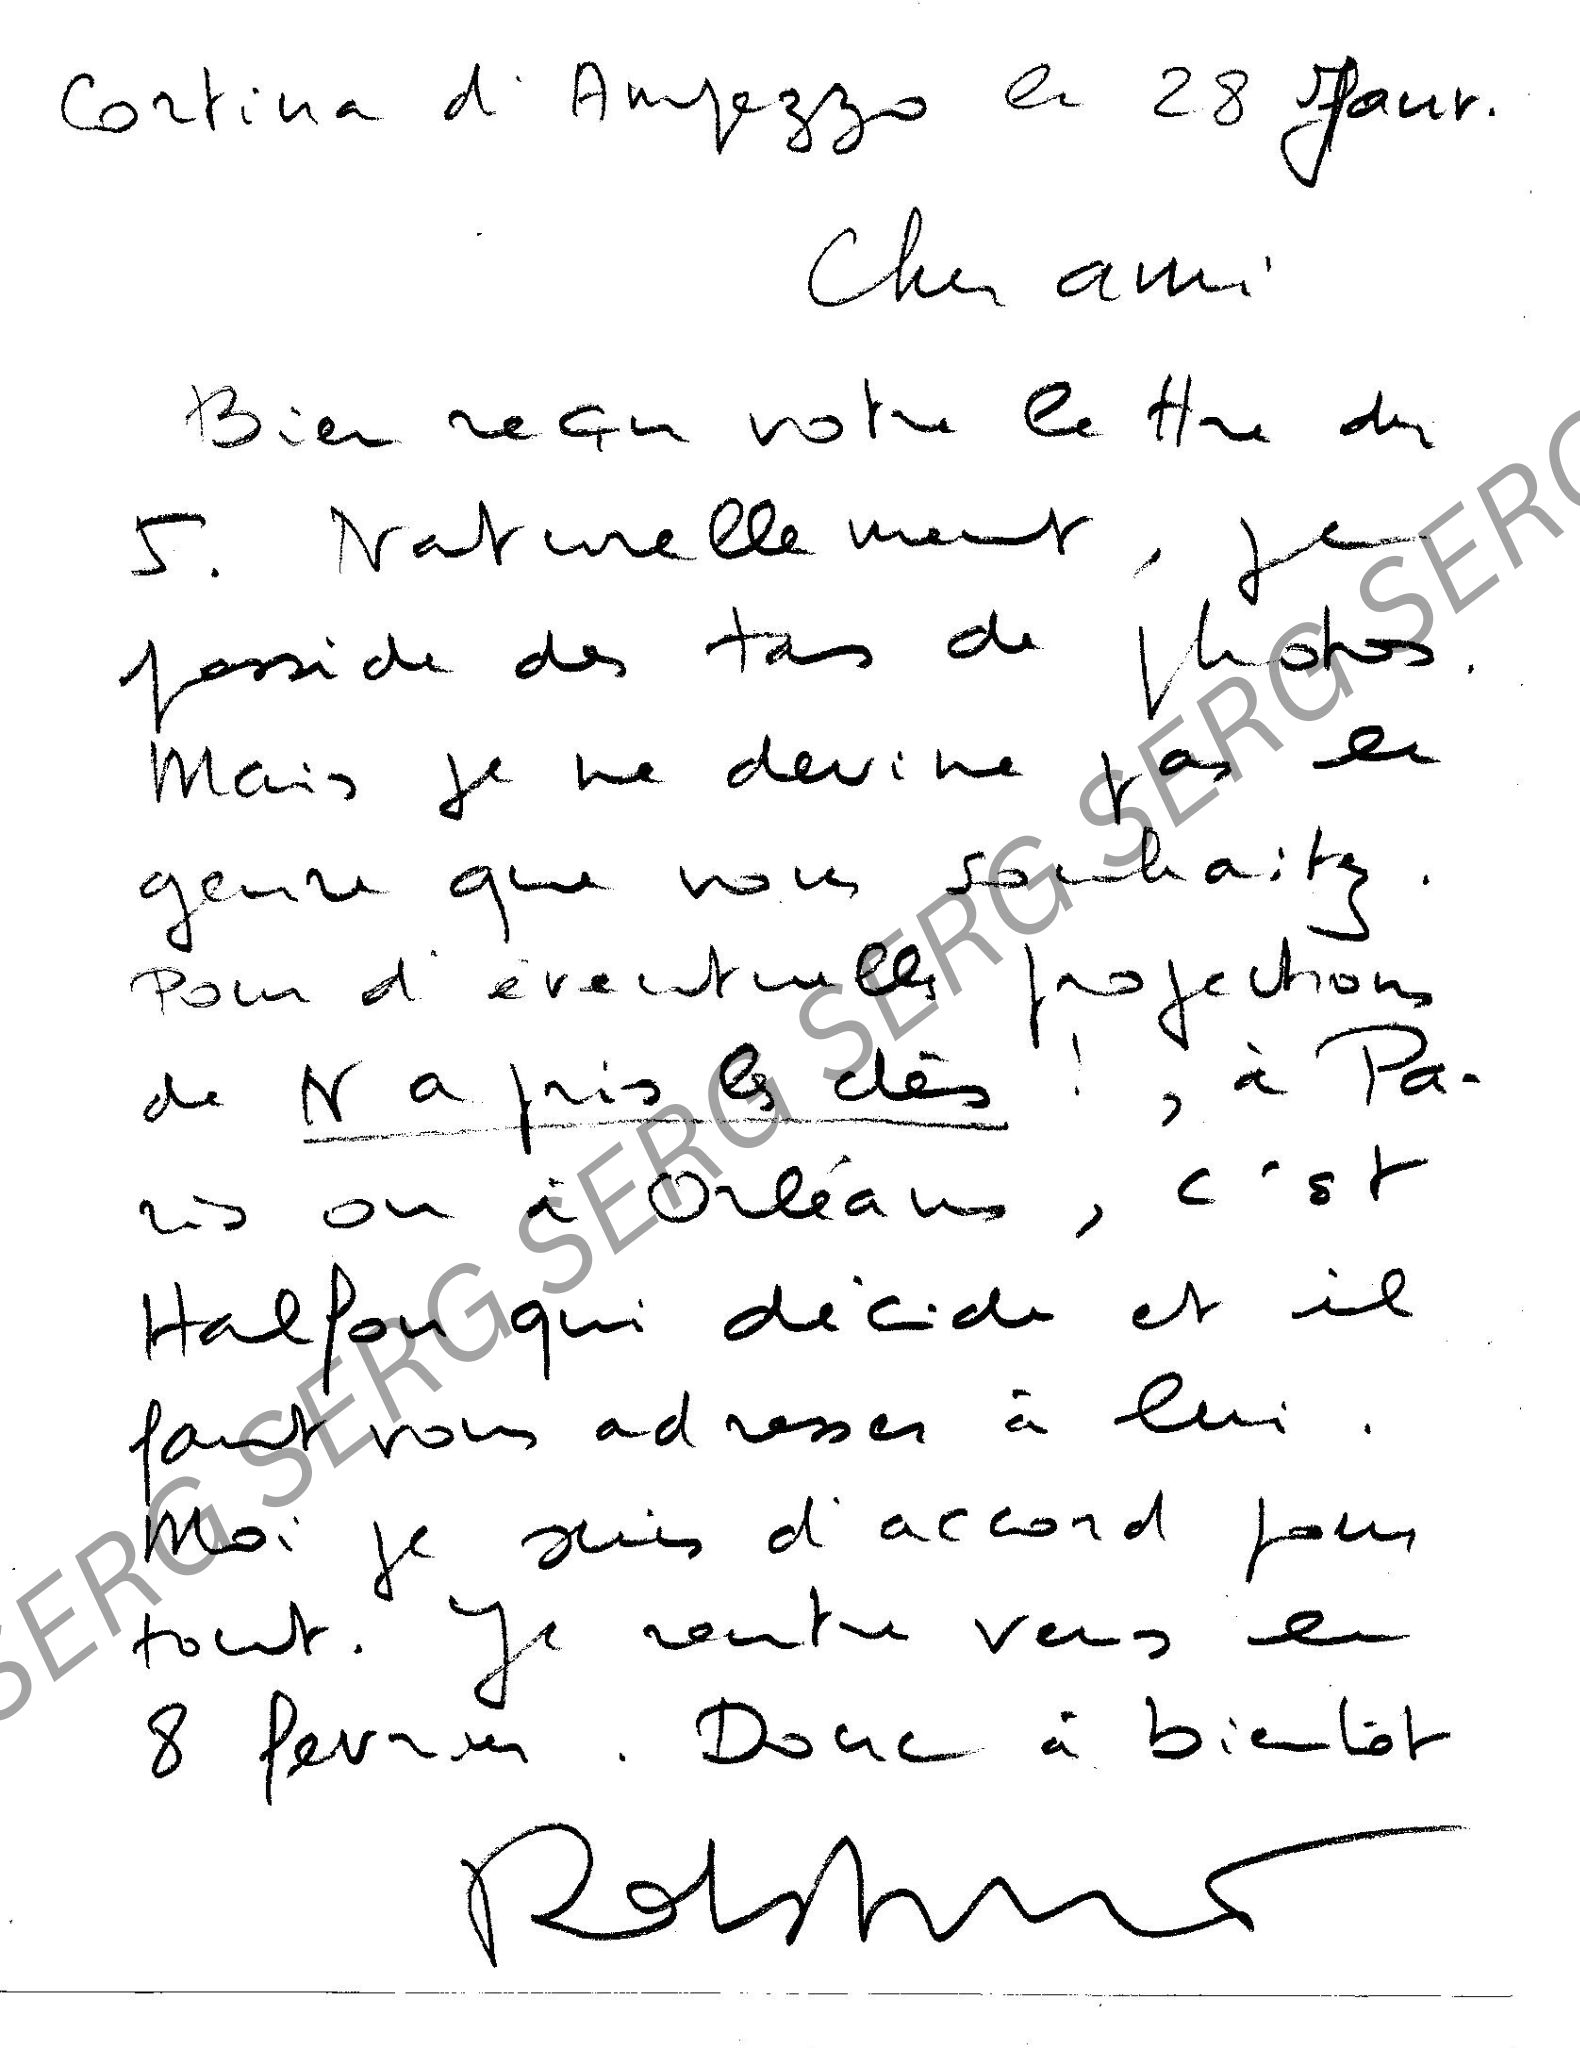 Cortina d'Ampezzo le 28 Janv.
Cher ami
Bien reçu votre lettre du
5. Naturellement, je
possède des tas de photos.
Mais je ne devine pas le
genre que vous souhaitez.
Pour d'éventuelles projections
de N a pris les dés !, à Pa-
ris ou à Orléans, c'est
Halfon qui décide et il
faut vous adresser à lui.
Moi je suis d'accord pour
tout. Je rentre vers le
8 février. Donc à bientôt
SERG SERG SERG SERG SERG SERG SERG